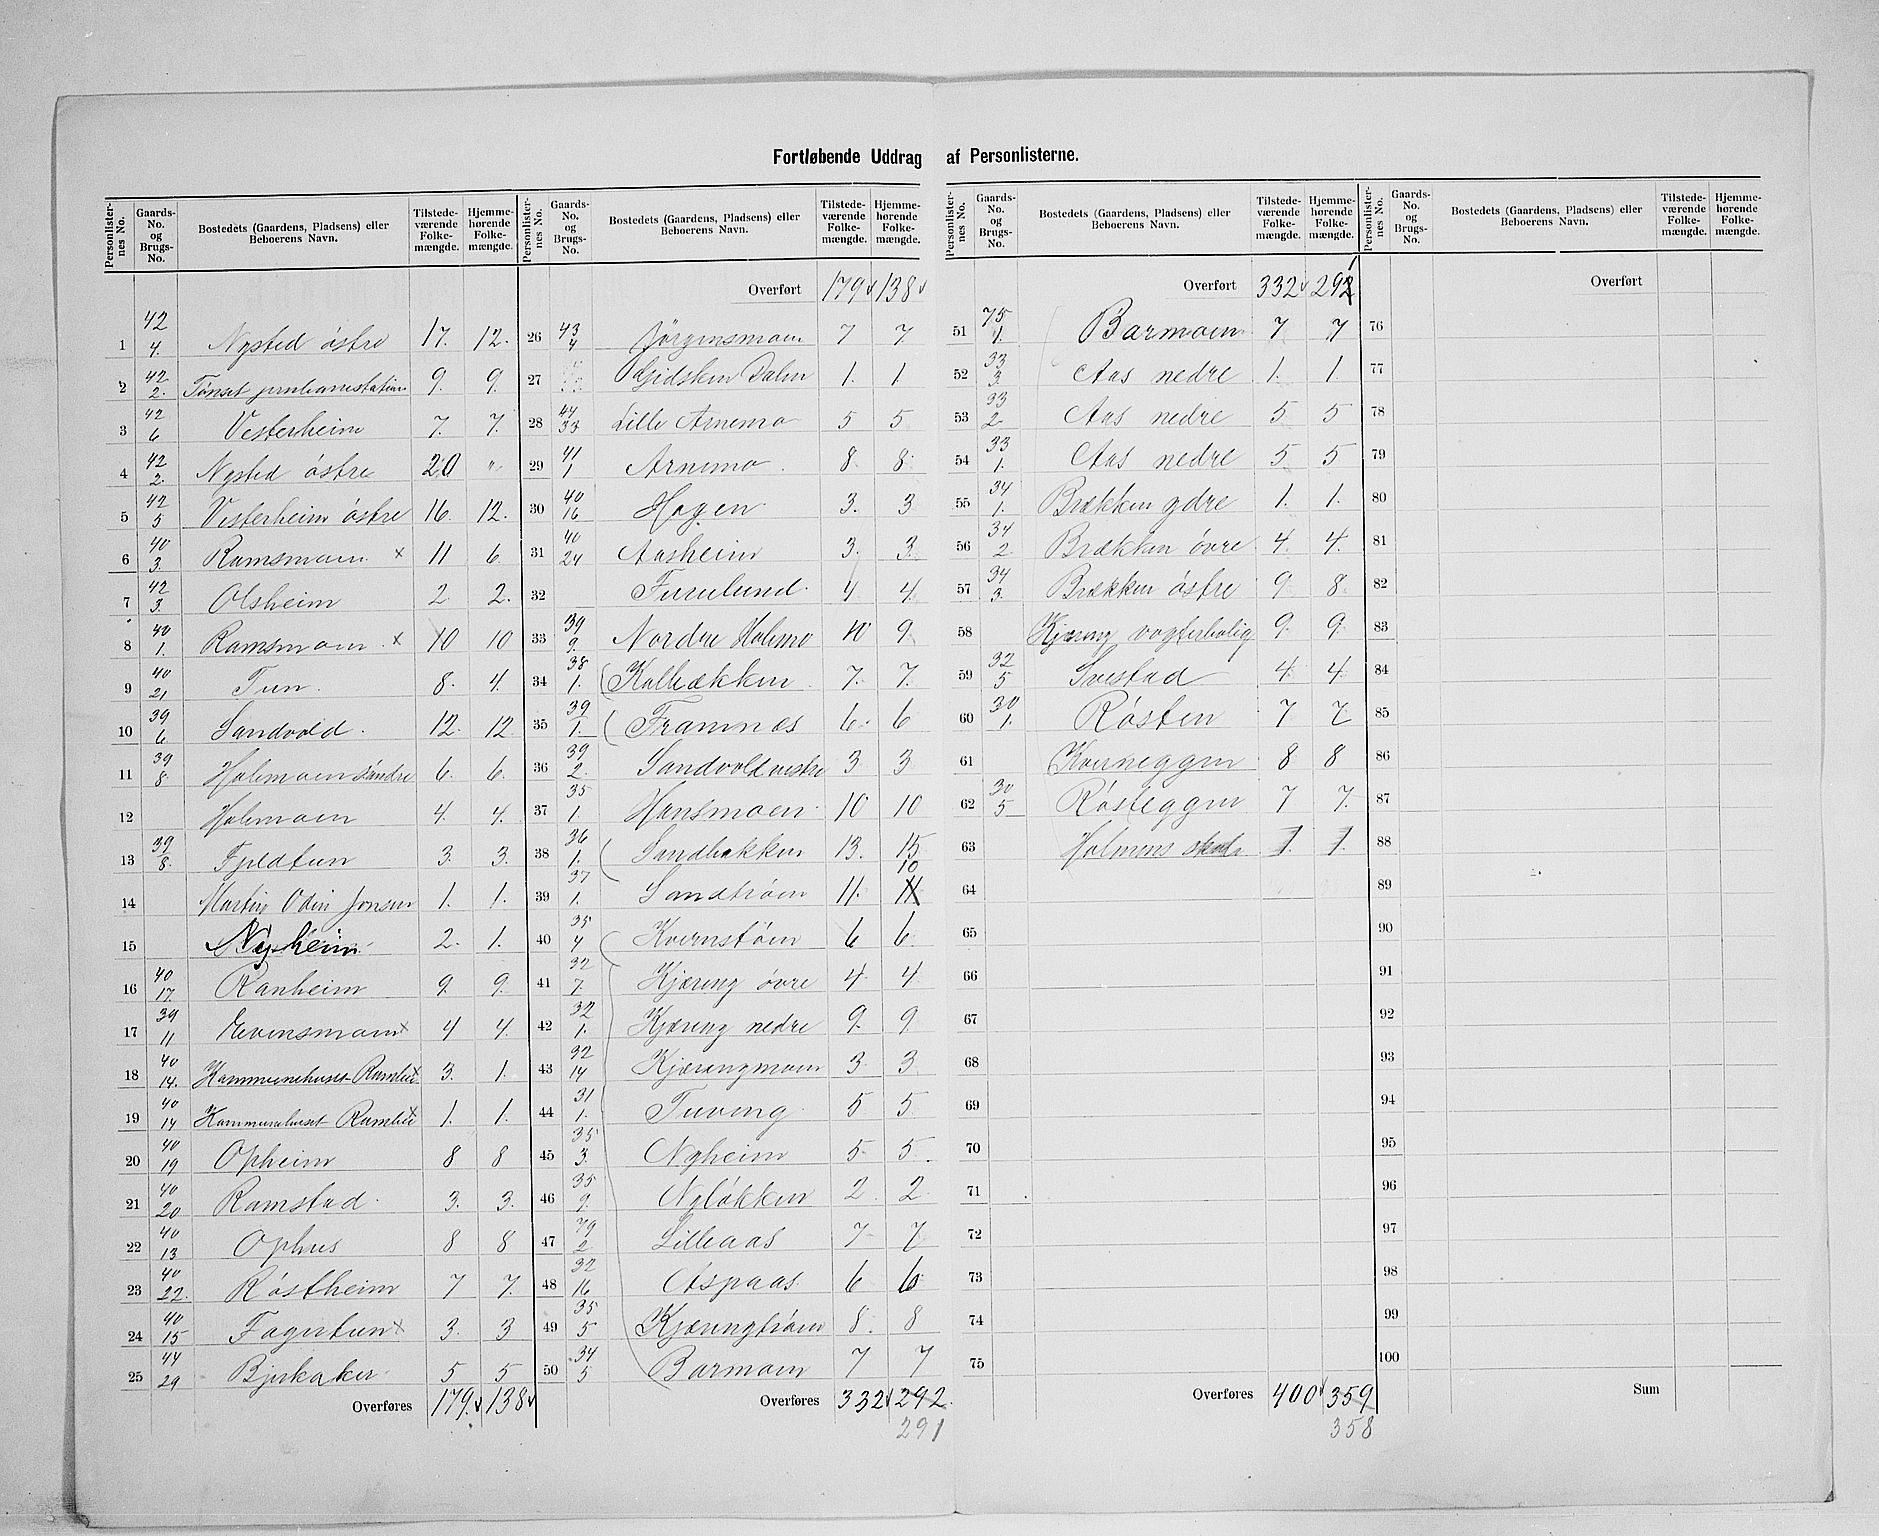 Fortløbende Uddrag af Personlisterne.
Personlister-nes No. | Gaards-No. og Brugs-No. | Bostedets (Gaardens, Pladsens) eller Beboerens Navn. | Tilstede-værende Folke-mængde. | Hjemme-hørende Folke-mængde.
1 42/4. Nysted østre 17. 12.
2 42/2. Tønset jernbanestation 9. 9.
3 42/6 Vesterheim 7. 7.
4 42/2. Nysted østre 20 "
5 42/5 Vesterheim østre 16. 12.
6 40/3. Ramsmoen x 11 6.
7 42/3. Olsheim 2 2.
8 40/1. Ramsmoen x 10 10
9 40/21 Tun. 8. 4.
10 39/6 Sandvold. 12. 12.
11 39/8. Holmmoen søndre 6. 6.
12 Holmmoen 4. 4.
13 39/8. Fjeldtun 3. 3.
14 Martin Odin Jonsen 1. 1.
15 Nyheim 2. 1.
16 40/17. Ranheim 9. 9.
17 39/11 Evensmoen x 4 4.
18 40/14. Kommunehuset Ramlien x 3. 1.
19 40/14 Kommunehuset Ramlien x 1. 1.
20 40/19 Opheim 8 8
21 40/20 Ramstad. 3. 3.
22 40/13 Ophus 8 8
23 40/22. Røstheim 7 7.
24 40/15 Fagertun x 3. 3
25 44/29 Bjerkaker. 5 5
Overføres 179. 138
Personlister-nes No. | Gaards-No. og Brugs-No. | Bostedets (Gaardens, Pladsens) eller Beboerens Navn. | Tilstede-værende Folke-mængde. | Hjemme-hørende Folke-mængde.
Overført 179 138
26 43/4 Jørgensmoen 7 7.
27 Gidsken Dalen 1. 1.
28 44/33 Lille Arnemo 5 5
29 41/1 Arnemo. 8 8.
30 40/16 Hagen 3. 3
31 40/24 Aasheim 3. 3.
32 Furulund. 4 4.
33 39/9. Nordre Holmmo 10 9.
34 38/1. Kolbækken 7. 7.
35 39/1. Framnes 6. 6
36 39/2. Sandvold vestre 3 3.
37 35/1. Hansmoen. 10 10
38 36/1. Sandbakken 13. 15
39 37/1. Sandtrøen 11. 11 10
40 35/4 Kvernstøen 6 6.
41 32/7. Kjæreng øvre 4 4
42 32/1. Kjæreng nedre 9. 9
43 32/14 Kjærengmoen 3. 3
44 31/1. Tuveng. 5 5.
45 35/3. Nyheim 5 5.
46 35/9. Nyløkken 2 2.
47 79/2. Lilleaas 7 7
48 32/16 Aspaas. 6 6
49 35/5 Kjærengtrøen 8. 8
50 34/5 Barmoen 7 7
Overføres 332 292.
291
Personlister-nes No. | Gaards-No. og Brugs-No. | Bostedets (Gaardens, Pladsens) eller Beboerens Navn. | Tilstede-værende Folke-mængde. | Hjemme-hørende Folke-mængde.
Overført 332 292 1
51 75/1. Barmoen. 7 7
52 33/3. Aas nedre 1. 1
53 33/2 Aas nedre 5 5
54 33/1. Aas nedre 5 5
55 34/1. Brækken ydre 1. 1.
56 34/2. Brækken øvre 4. 4.
57 34/3. Brækken østre 9 8.
58 Kjæreng vogterbolig 9. 9.
59 32/5 Svestad 4 4.
60 30/1. Røsten 7 7
61 Kverneggen 8 8
62 30/5 Røsteggen 7 7.
63 Holmens skole 1. 1.
64
65
66
67
68
69
70
71
72
73
74
75
Overføres 400 359
358
Personlister-nes No. | Gaards-No. og Brugs-No. | Bostedets (Gaardens, Pladsens) eller Beboerens Navn. | Tilstede-værende Folke-mængde. | Hjemme-hørende Folke-mængde.
Overført
76
77
78
79
80
81
82
83
84
85
86
87
88
89
90
91
92
93
94
95
96
97
98
99
100
Sum